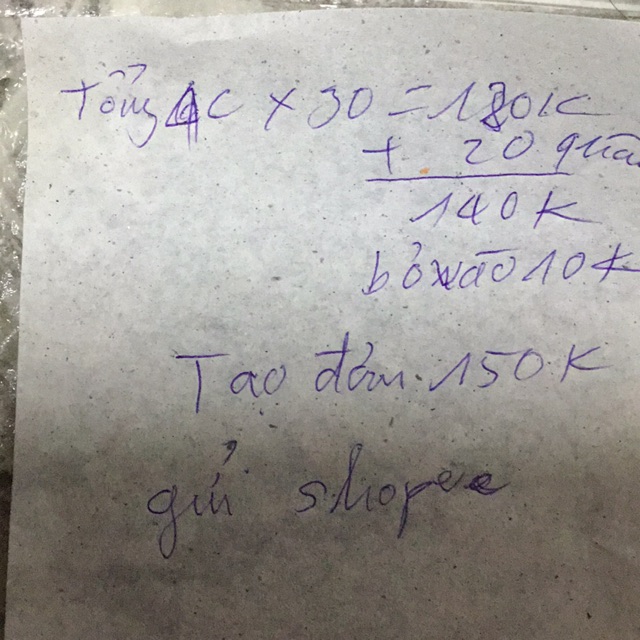 Tổng 4C x 30 = 120K
+ 20 quần
140K
bỏ vào 10K
Tạo đơn 150K
gửi shopee